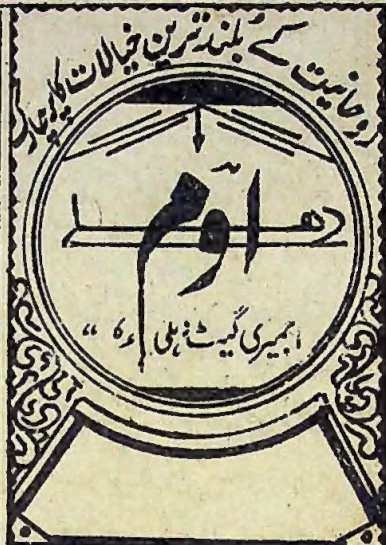 روحانیت کے بلند ترین خیالات کا پرچارک
اوم
اجمیری گیٹ دہلی ۶ کا “